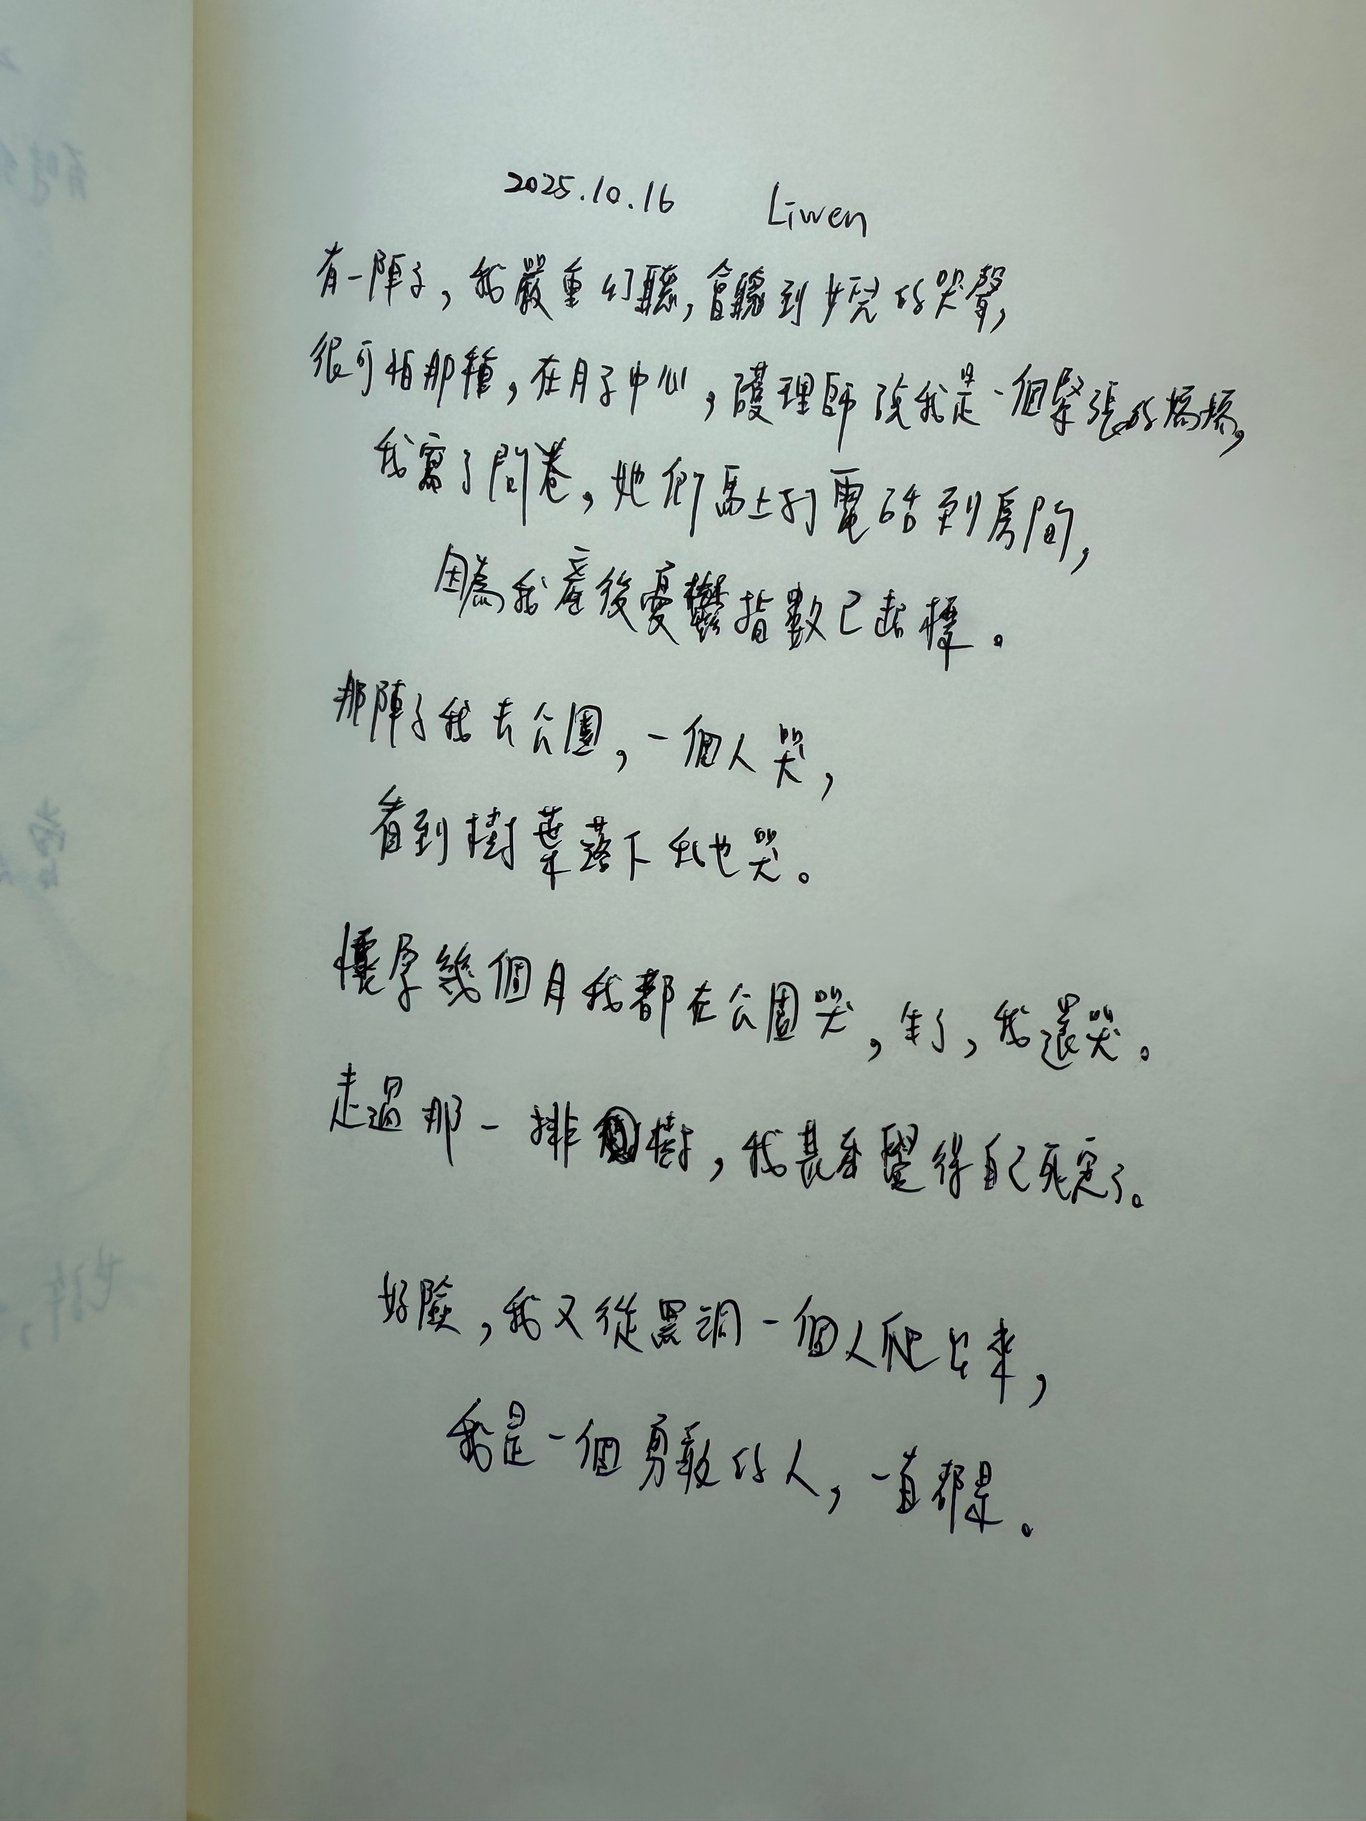 2025.10.16 Liwen
有一陣子，我嚴重幻聽，會聽到女兒的哭聲，
很可怕那種，在月子中心，護理師說我是一個緊張的媽媽，
我寫了問卷，她們馬上打電話到房間，
因為我產後憂鬱指數已超標。
那陣子我去公園，一個人哭，
看到樹葉落下我也哭。
懷孕幾個月我都在公園哭，生了，我還哭。
走過那一排樹，我甚至覺得自己死定了。
好險，我又從黑洞一個人爬出來，
我是一個勇敢的人，一直都是。